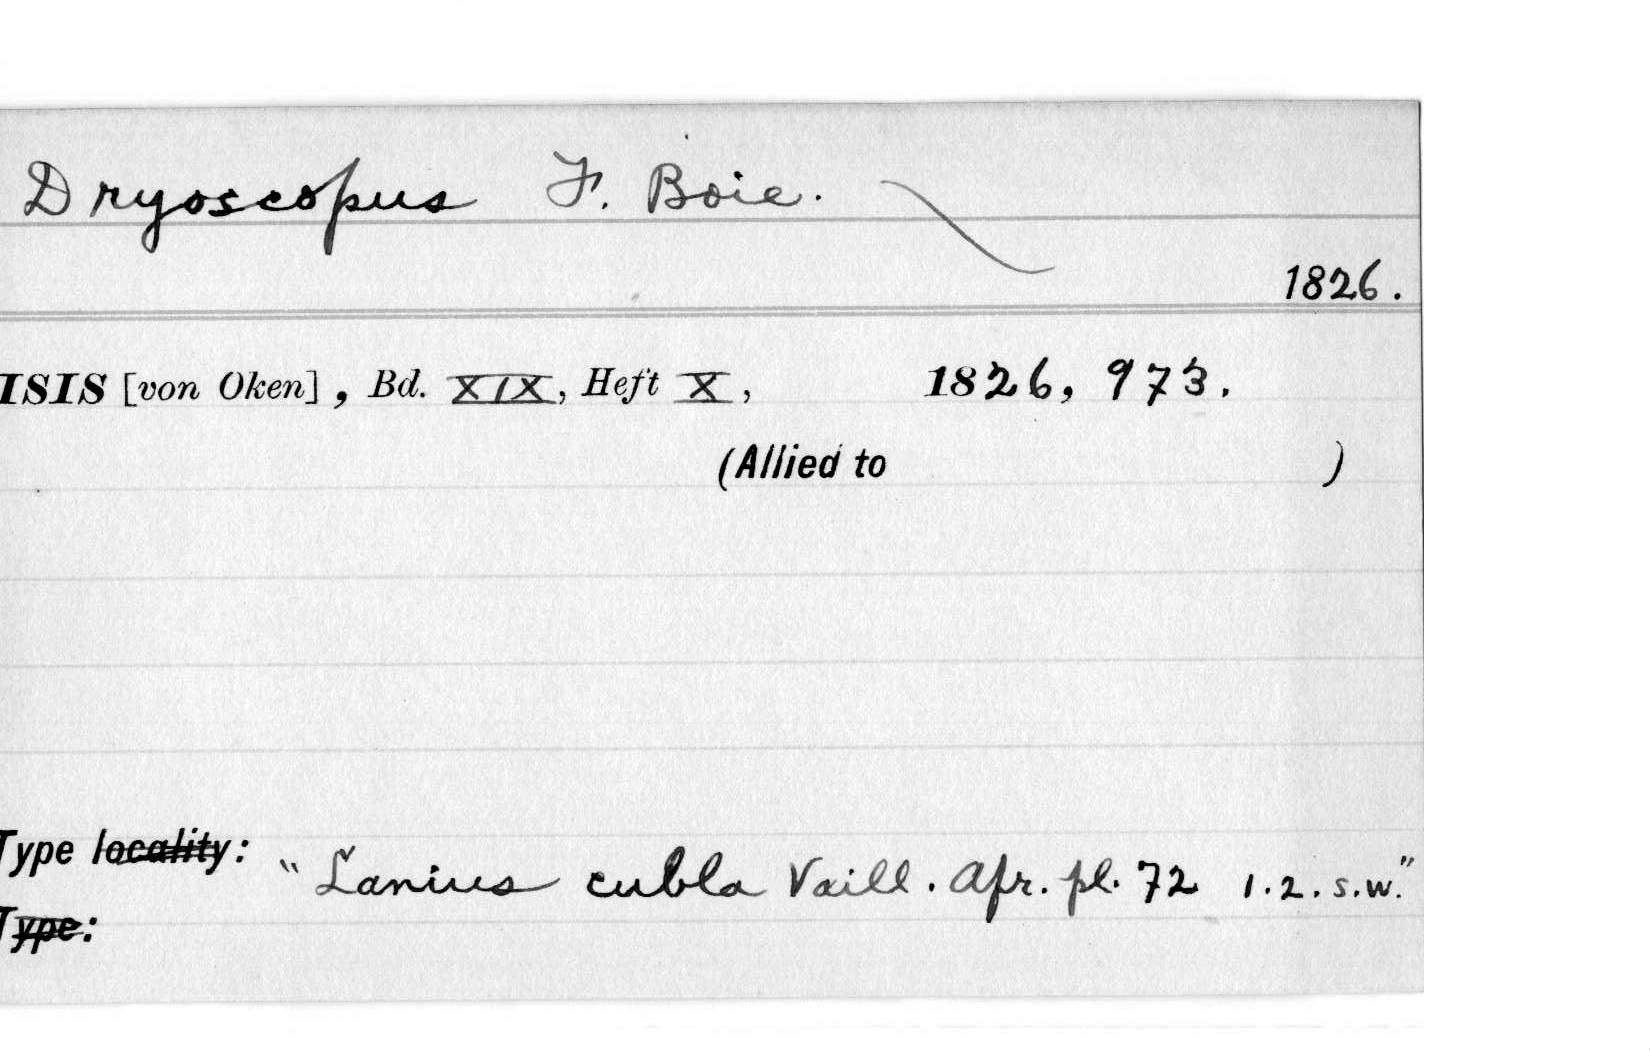 Dryoscopus F. Boie.
1826.
ISIS [von Oken], Bd. XIX, Heft X, 1826, 973.
(Allied to )
Type locality:
"Lanius cubla Vaill. Afr. pl. 72 1.2. s.w."
Type: